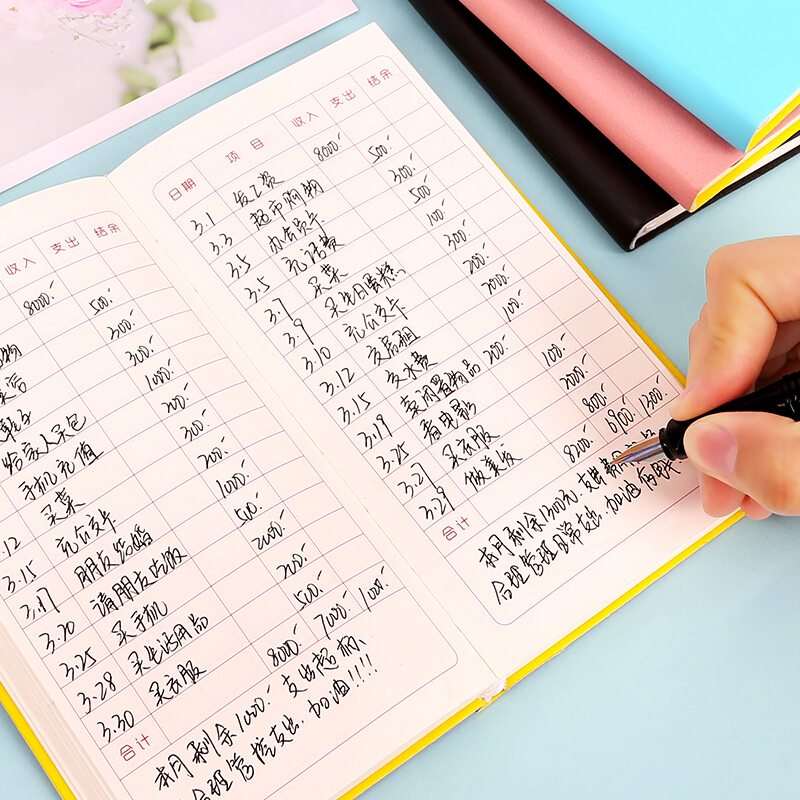 收入 支出 结余
8000
物 500
300
鞋子 300
给家人红包 1000
手机充值 200
买菜 300
12 充公交卡 200
3.15 朋友结婚 1000
3.17 请朋友吃饭 500
3.20 买手机 2000
3.25 买生活用品 200
3.28 买衣服 500
3.30
合计 8000 7000 1000
本月剩余1000. 支出超标、
合理管控支出. 加油!!!!
日期 项目 收入 支出 结余
3.1 发工资 8000
3.3 超市购物 500
3.5 办会员卡 300
3.5 充话费 500
3.7 买菜 100
3.9 买生日蛋糕 300
3.10 充公交卡 200
3.12 交房租 2000
3.15 交水费 100
3.19 卖闲置物品 200
3.25 看电影 100
3.27 买衣服 2000
3.29 做美发 800
合计 8200 6900 1300
本月剩余1300元. 支出费用
合理管理日常支出. 加油